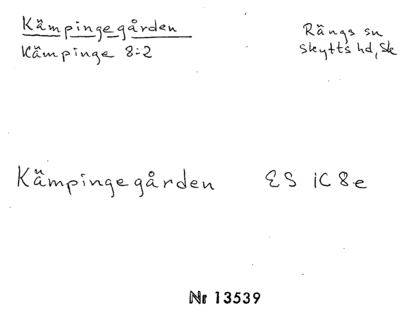 Kämpingegården
Rängs sn
Kämpinge 8:2
Skytts hd, Sk
Kämpingegården ES 1C8e
Nr 13539